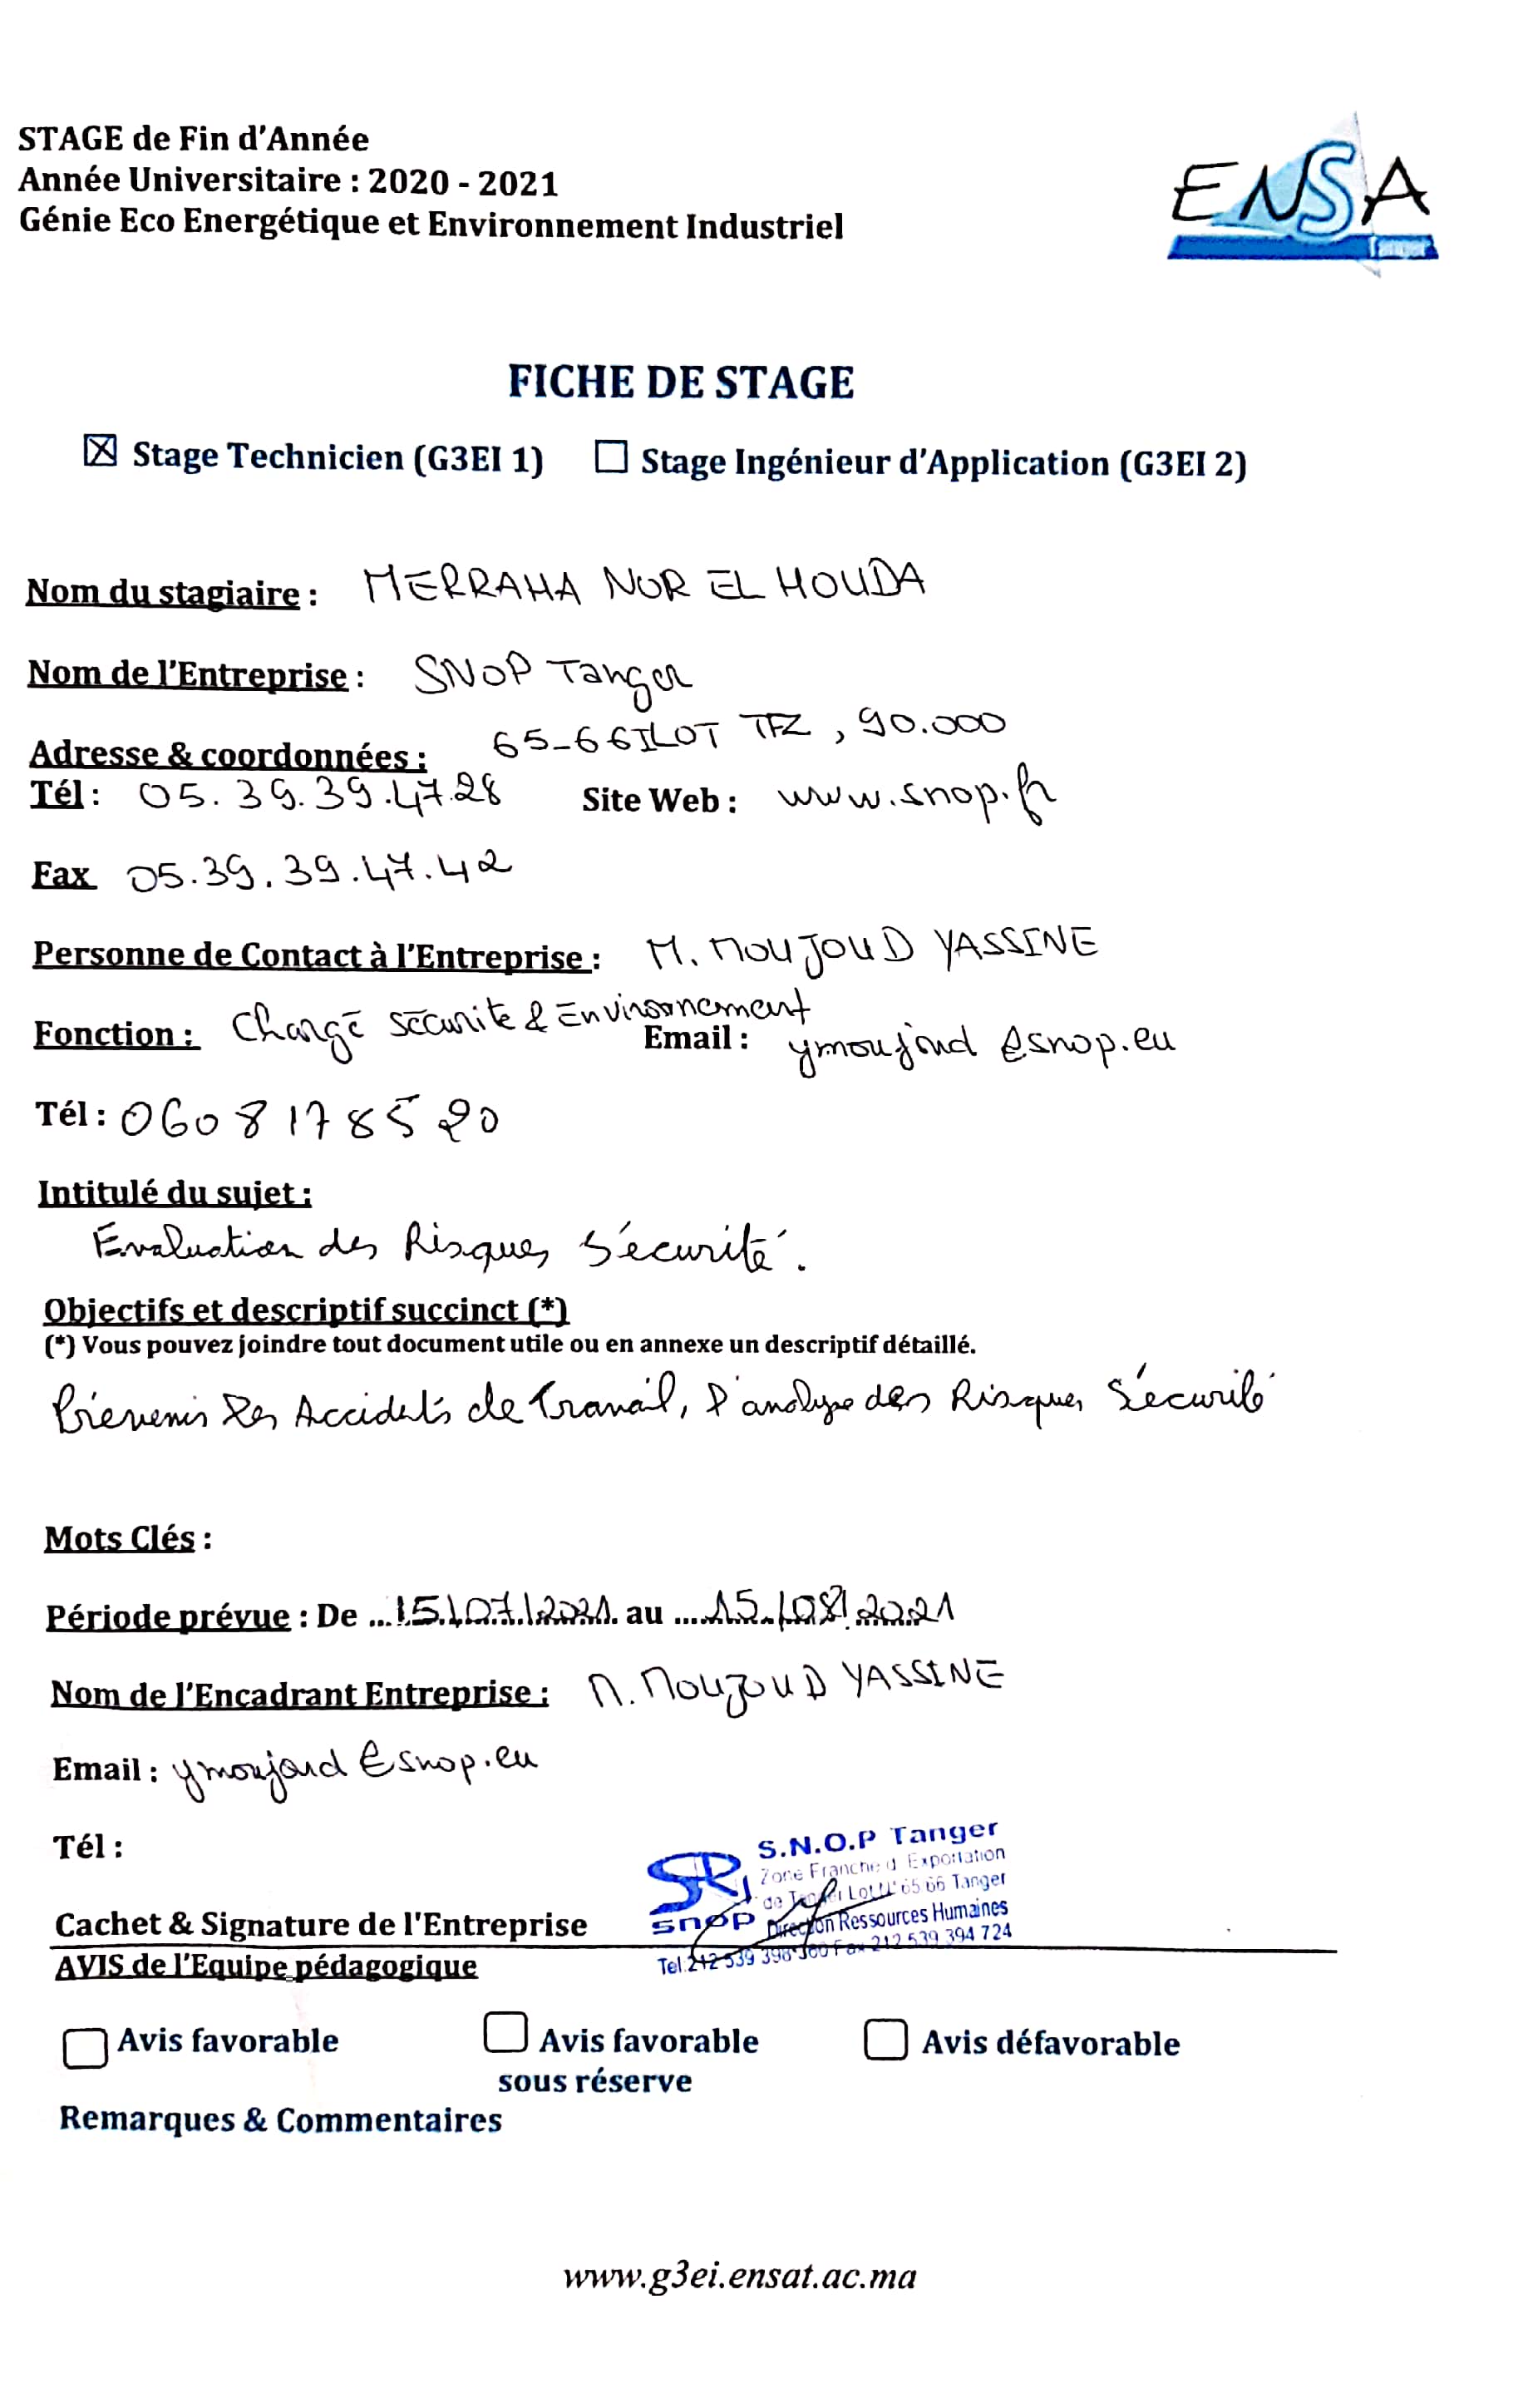 STAGE de Fin d'Année
Année Universitaire : 2020 - 2021
Génie Eco Energétique et Environnement Industriel
ENSA
Tanger
FICHE DE STAGE
☒ Stage Technicien (G3EI 1) ☐ Stage Ingénieur d'Application (G3EI 2)
Nom du stagiaire : MERRAHA NOR EL HOUDA
Nom de l'Entreprise : SNOP Tanger
Adresse & coordonnées : 65-66 ILOT TFZ, 90.000
Tél : 05.39.39.47.28 Site Web : www.snop.fr
Fax 05.39.39.47.42
Personne de Contact à l'Entreprise : M. MOUJOUD YASSINE
Fonction : Chargé sécurité & Environnement Email : ymoujoud@snop.eu
Tél : 0608178520
Intitulé du sujet :
Evaluation des Risques Sécurité.
Objectifs et descriptif succinct (*)
(*) Vous pouvez joindre tout document utile ou en annexe un descriptif détaillé.
Prévenir les Accidents de Travail, l'analyse des Risques Sécurité
Mots Clés :
Période prévue : De ...15/07/2021. au .....15/08/2021
Nom de l'Encadrant Entreprise : M. MOUJOUD YASSINE
Email : ymoujoud@snop.eu
Tél :
S.N.O.P Tanger
Zone Franche d'Exportation
de Tanger Lot N° 65 66 Tanger
snop Direction Ressources Humaines
Tel.212 539 398 360 Fax 212 539 394 724
Cachet & Signature de l'Entreprise
AVIS de l'Equipe pédagogique
☐ Avis favorable ☐ Avis favorable ☐ Avis défavorable
sous réserve
Remarques & Commentaires
www.g3ei.ensat.ac.ma